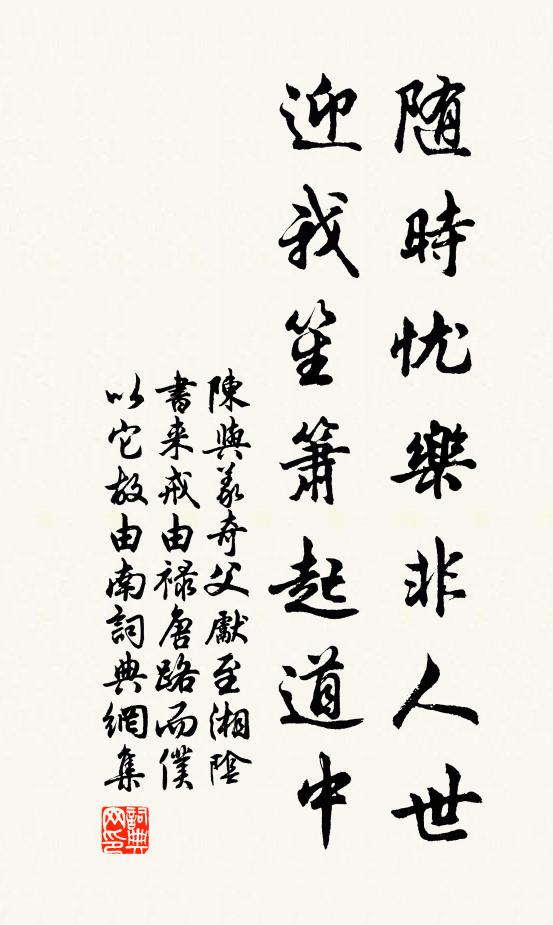 随時忧樂非人世
迎我笙簫起道中
陳與義奇父獻至湘陰
書来戒由禄唐路而僕
以它故由南詞典網集
詞典
网印